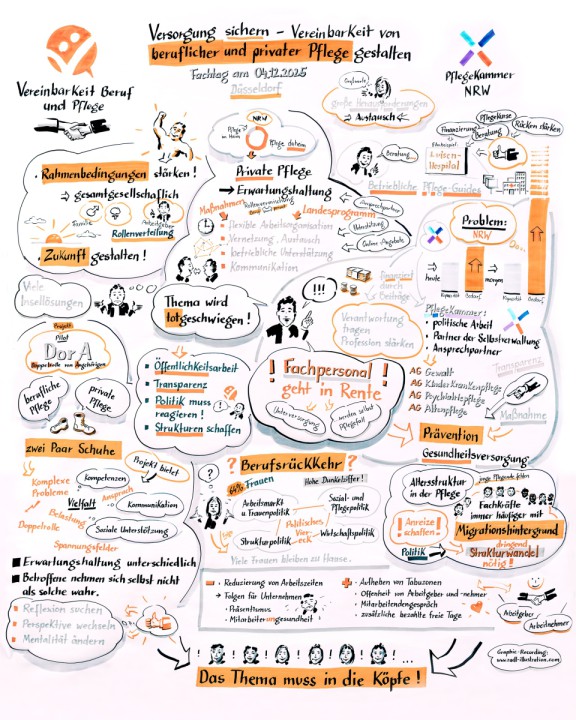 Versorgung sichern – Vereinbarkeit von
beruflicher und privater Pflege gestalten
Fachtag am 04.12.2025
Düsseldorf
Vereinbarkeit Beruf
und Pflege
PflegeKammer
NRW
große Herausforderungen
→ Austausch ←
Rahmenbedingungen stärken!
→ gesamtgesellschaftlich
Familie
Arbeitgeber
Rollenverteilung
Zukunft gestalten!
NRW
Pflege im Heim
Pflege daheim
Private Pflege
→ Erwartungshaltung
Maßnahmen
Rollenverteilung
Beruf privat
Landesprogramm
flexible Arbeitsorganisation
Vernetzung, Austausch
betriebliche Unterstützung
Kommunikation
Ansprechpartner
Unterstützung
Online-Angebote
Beratung
Finanzierung
Pflegekurse
Beratung
Rücken stärken
Praxisbeispiel:
Luisen-
Hospital
Betriebliche Pflege-Guides
Problem:
NRW
→ heute
Kapazität
Bedarf
→ morgen
Kapazität
Bedarf
Viele
Insellösungen
Thema wird
totgeschwiegen!
!!!
finanziert
durch
Beiträge
Verantwortung
tragen
Profession stärken
PflegeKammer:
politische Arbeit
Partner der Selbstverwaltung
Ansprechpartner
AG Gewalt
AG Kinderkrankenpflege
AG Psychiatriepflege
AG Altenpflege
Transparenz
Maßnahme
Prävention
Gesundheitsversorgung
Projekt
Pilot
DorA
Doppelrolle von Angehörigen
berufliche
Pflege
private
Pflege
zwei Paar Schuhe
Öffentlichkeitsarbeit
Transparenz
Politik muss
reagieren!
Strukturen schaffen
! Fachpersonal !
geht in Rente
Unterversorgung
werden selbst
Pflegefall
Projekt bietet
Komplexe
Probleme
Kompetenzen
Vielfalt
Anspruch
Kommunikation
Belastung
Doppelrolle
Soziale Unterstützung
Spannungsfelder
Erwartungshaltung unterschiedlich
Betroffene nehmen sich selbst nicht
als solche wahr.
Reflexion suchen
Perspektive wechseln
Mentalität ändern
? Berufsrückkehr ?
64% Frauen
Hohe Dunkelziffer!
Arbeitsmarkt
u Frauenpolitik
Sozial- und
Pflegepolitik
Politisches
Vier-
eck
Strukturpolitik
Wirtschaftspolitik
Viele Frauen bleiben zu Hause.
Reduzierung von Arbeitszeiten
→ Folgen für Unternehmen
Präsentismus
Mitarbeiterungesundheit
Aufheben von Tabuzonen
Offenheit von Arbeitgeber und -nehmer
Mitarbeitendengespräch
zusätzliche bezahlte freie Tage
Altersstruktur
in der Pflege
junge Pflegende fehlen
Fachkräfte
immer häufiger mit
Migrationshintergrund
! Anreize
schaffen!
Politik
dringend
Strukturwandel
nötig!
Arbeitgeber
Arbeitnehmer
Graphic-Recording:
Das Thema muss in die Köpfe!